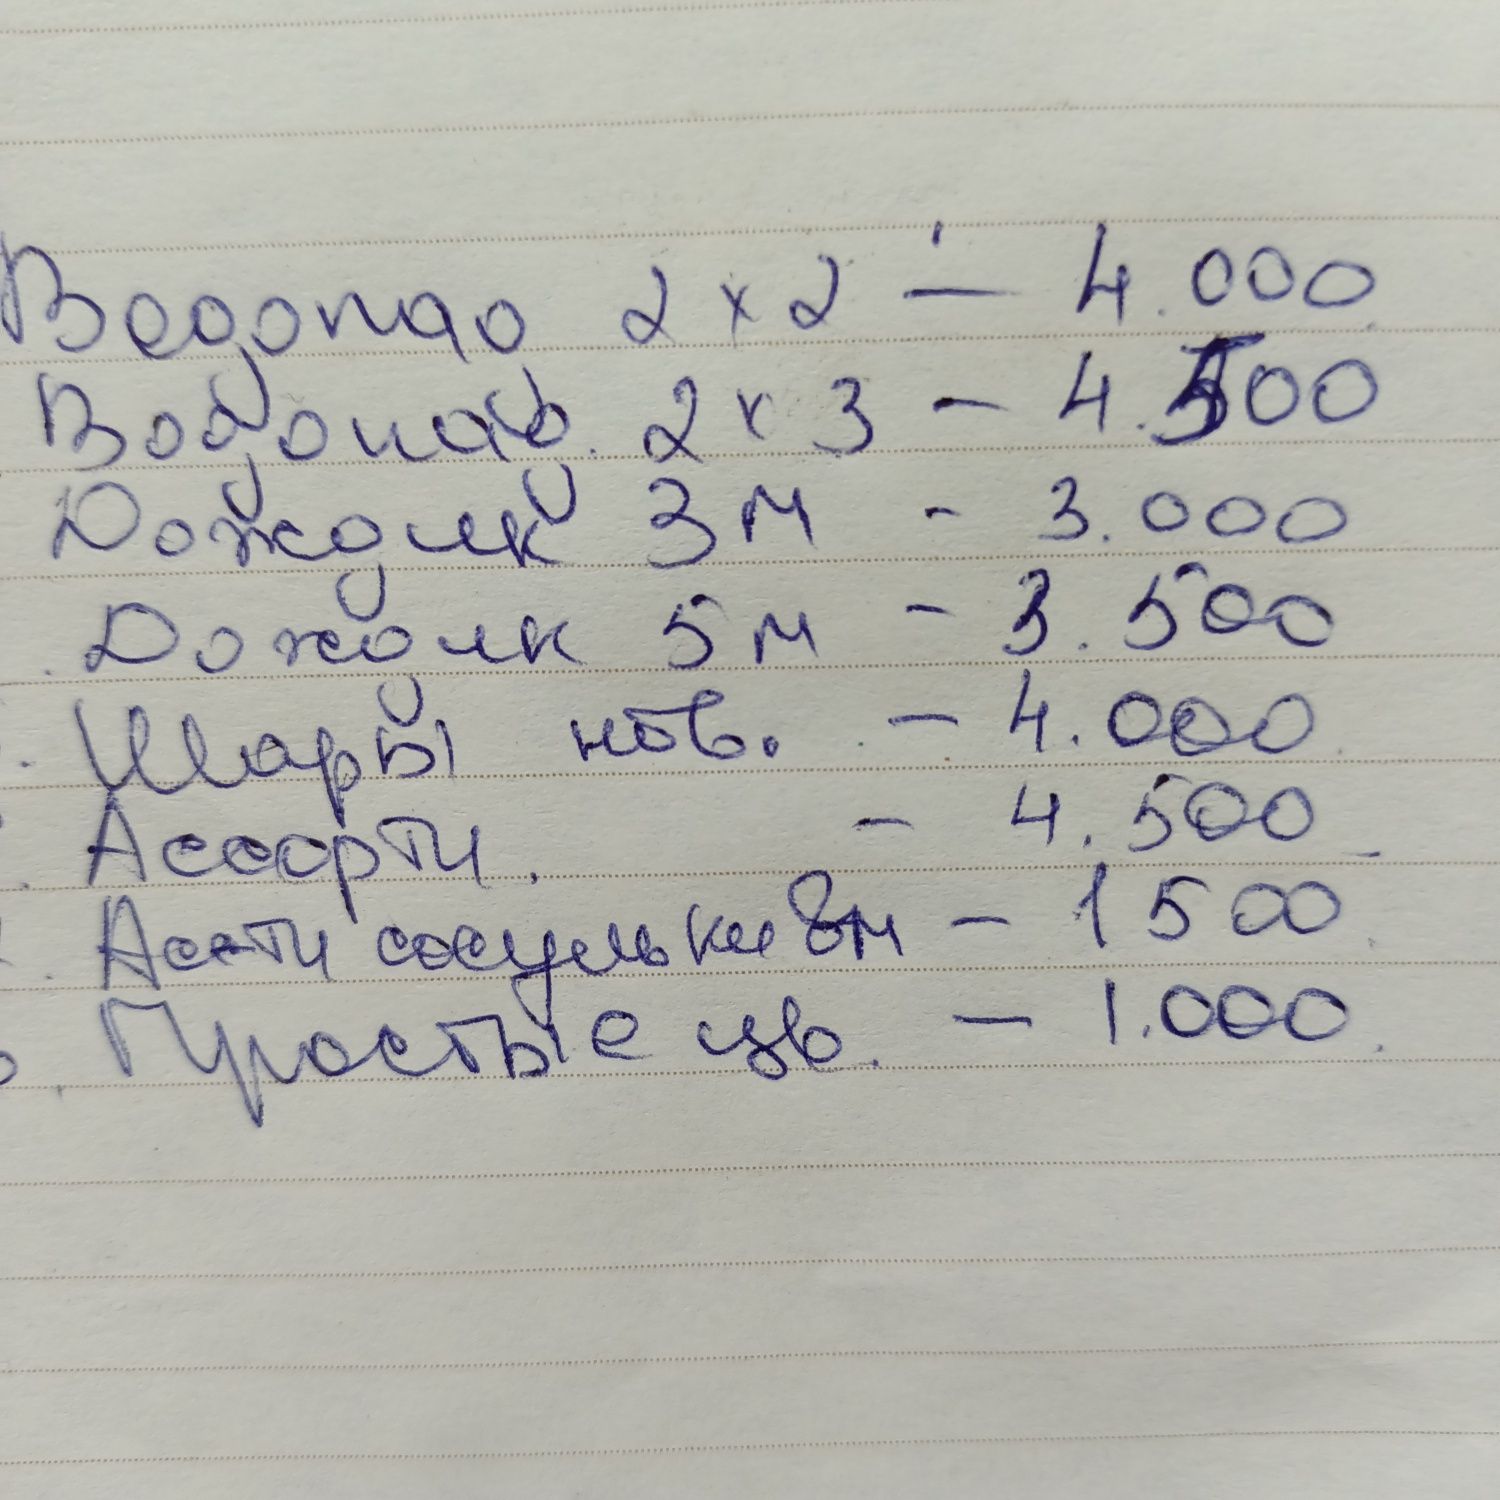 Водопад 2 x 2 — 4.000
Водопад. 2 x 3 - 4.500
Дождик 3 м - 3.000
Дождик 5 м - 3.500
Шары нов. - 4.000
Ассорти. - 4.500
сосульки 8м - 1500
Простые цв. - 1.000.